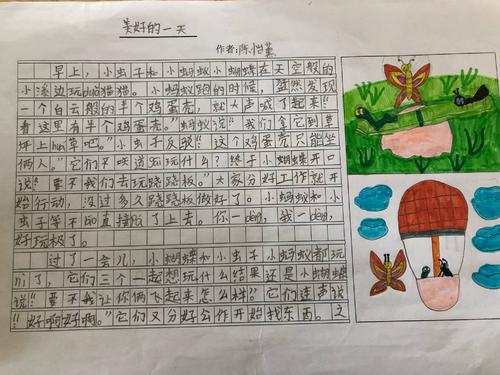 美好的一天
作者:陈怡萱
早上,小虫子和小蚂蚁小蝴蝶在天空般的
小溪边玩躲猫猫。小蚂蚁跑的时候,突然发现
一个白云般的半个鸡蛋壳,就大声喊了起来“
看这里有半个鸡蛋壳。”蚂蚁说“我们拿它到草
坪上hun草吧。”小虫子反驳“这个鸡蛋壳只能坐
俩人。”它们不知道玩什么?终于小蝴蝶开口
说“要不我们去玩跷跷板。”大家分好工作就开
始行动,没过多久跷跷板做好了。小蚂蚁和小
虫子等不的直接 了上去。你一dēng,我一dēng,
好玩极了。
过了一会儿,小蝴蝶和小虫子小蚂蚁都玩
了,它们三个一起想玩什么结果还是小蝴蝶
说“要不我让你俩飞起来怎么样。”它们连声说
“好啊好啊。”它们又分好工作开始找东西。之